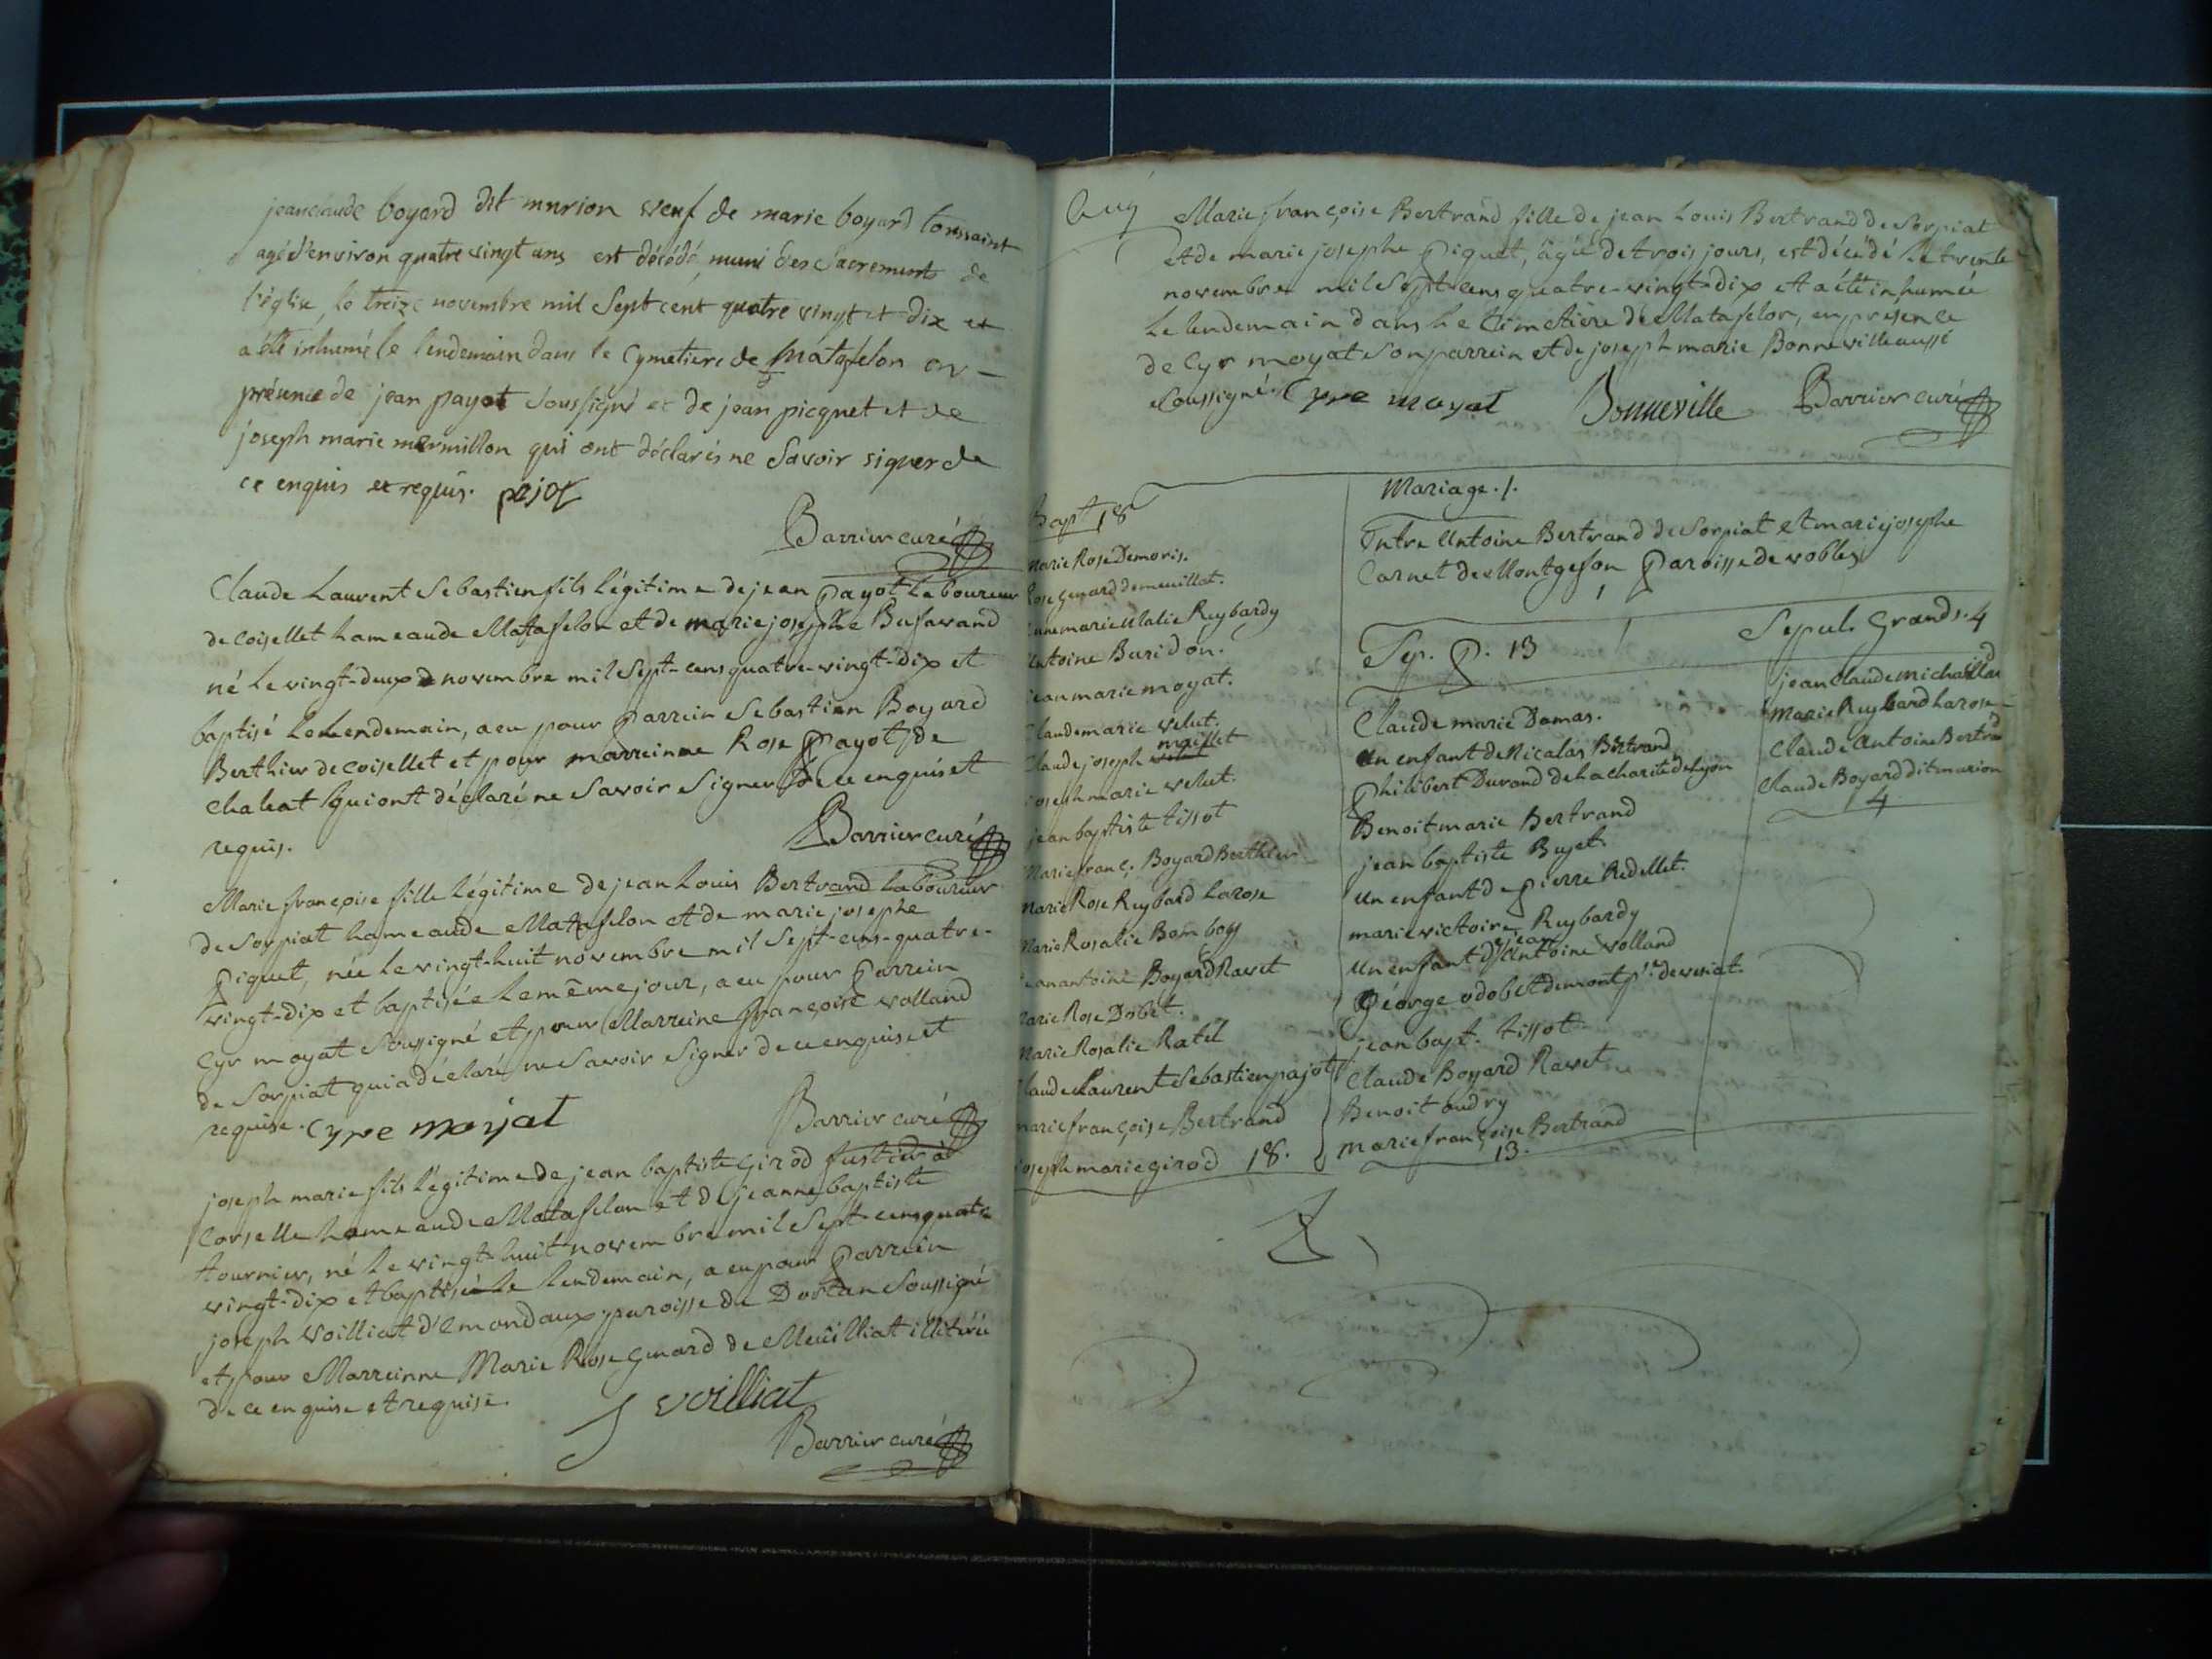 jeanclaude boyard dit murion veuf de marie boyard tonssaint
agé d'environ quatre vingt ans est décédé, muni des Sacrements de
l'église, le treize novembre mil Sept cent quatre vingt et dix et
a été inhumé le lendemain dans le Cymetiere de Matafelon en
présence de jean payot Soussigné et de jean picquet et de
joseph marie mermillon qui ont déclarés ne Savoir signer de
ce enquis et requis. pajot
Barrier curé
Claude Laurent Sebastien fils légitime de jean payot Laboureur
de Coisellet hameau de Matafelon et de marie josephe Bufavand
né le vingt-deux novembre mil Sept-cens quatre-vingt-dix et
baptisé le Lendemain, a eu pour parrein Sebastien Boyard
Berthier de Coisellet et pour marreinne Rose payot de
Chaleat qui ont déclaré ne Savoir Signer de ce enquis et
requis.
Barrier curé
Marie françoise fille légitime de jean Louis Bertrand Laboureur
de Sorpiat hameau de Matafelon et de marie josephe
piquet, née le vingt-huit novembre mil Sept-cens-quatre-
vingt-dix et baptisée le même jour, a eu pour parrein
Cyr moyat Soussigné et pour Marreine françoise volland
de Sorpiat qui a déclaré ne Savoir Signer de ce enquise et
requise. Cyre moyat
Barrier curé
joseph marie fils légitime de jean baptiste girod fustier à
Corselle hameau de Matafelon et de jeanne baptiste
tournier, né le vingt-huit novembre mil Sept-cens quatre
vingt-dix et baptisé le lendemain, a eu pour parrein
joseph Voilliat d'Emondaux paroisse de Dortan Soussigné
et pour Marreinne Marie Rose guiard de Meüilliat illitérée
de ce enquise et requise.
J voilliat
Barrier curé
Marie françoise Bertrand fille de jean Louis Bertrand de Sorpiat
et de marie josephe piquet, agée de trois jours, est décédé le trente
novembre mil Sept-cens quatre-vingt-dix et a été inhumée
le lendemain dans le Cimetière de Matafelon, en présence
de Cyr moyat Son parrein et de joseph marie Bonneville aussi
Soussigné. Cyre moyat Bonneville Barrier curé
Bapt 18
Marie Rose Demoris.
Rose guiard de meuillat.
anne marie Ulalie Ruybardy
Antoine Buridon.
jean marie moyat.
Claude marie velut.
Claude joseph maillet
joseph marie velut.
jean baptiste tissot
Marie franç. Boyard Berthier
Marie Rose Ruybard Larose
Marie Rosalie Bomboy
jean antoine Boyard Ravet
Marie Rose Dobet.
Marie Rosalie Ratel
Claude Laurent Sebastien pajot
Marie françoise Bertrand
joseph marie girod 18.
Mariage. 1.
Entre Antoine Bertrand de Sorpiat et marie josephe
Carnet de Montgefon paroisse de vobles
1
Sep. p. 13
Claude marie Damas.
un enfant de Nicolas Bertrand
philibert Durand de la charité de Lyon
Benoit marie Bertrand
jean baptiste Bujet.
un enfant de pierre Redellet.
marie victoire Ruybardy
un enfant de jean Antoine volland
George odobet demont psse de vesiat.
jean bapt. tissot
Claude Boyard Ravet
Benoit oudry
Marie françoise Bertrand
13.
Sepul. Grands. 4
jean Claude Michaillard
Marie Ruybard Larose
Claude Antoine Bertrand
Claude Boyard dit marion
4